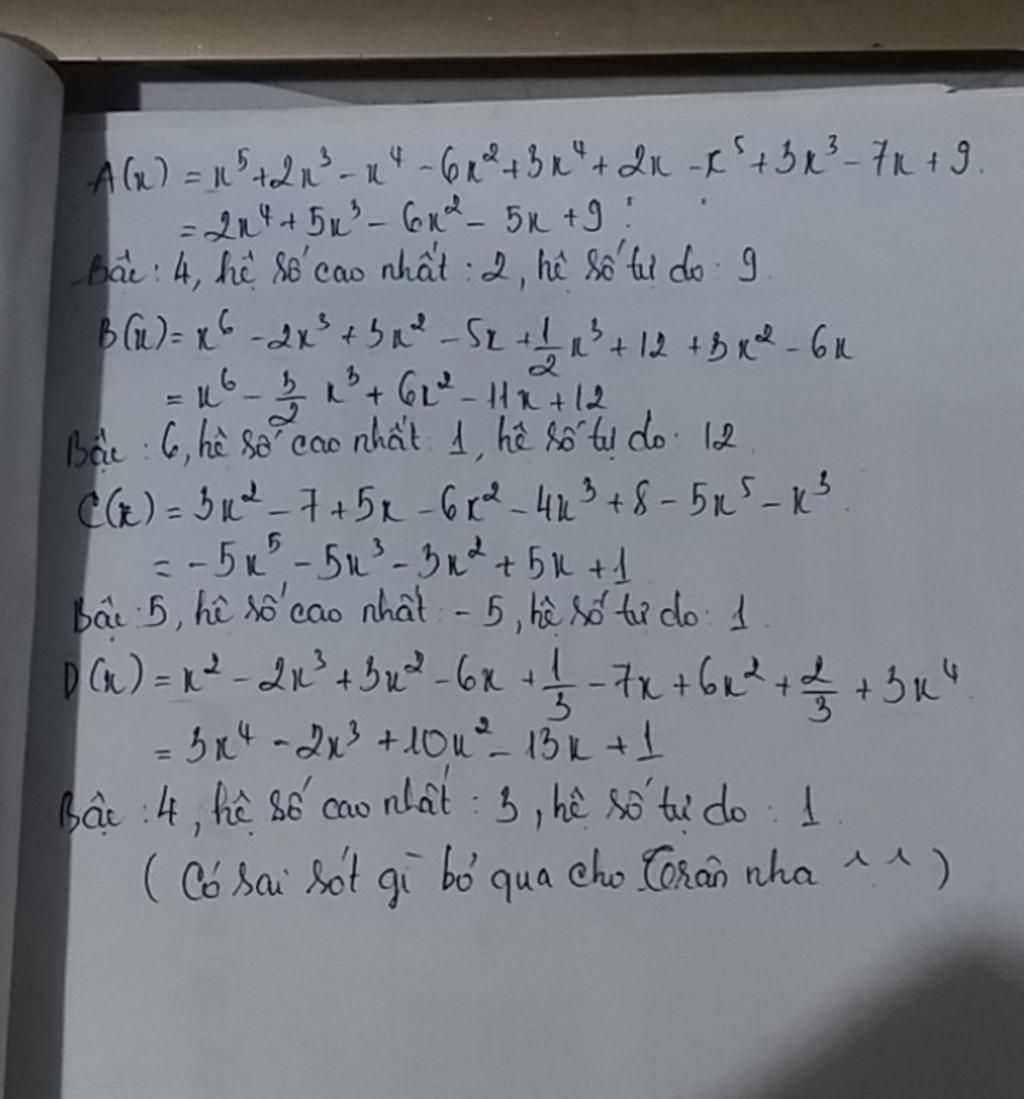 A(x) = x⁵ + 2x³ - x⁴ - 6x² + 3x⁴ + 2x - x⁵ + 3x³ - 7x + 9.
= 2x⁴ + 5x³ - 6x² - 5x + 9
Bậc : 4, hệ số cao nhất : 2, hệ số tự do : 9
B(x) = x⁶ - 2x³ + 3x² - 5x + 1/2 x³ + 12 + 3x² - 6x
= x⁶ - 3/2 x³ + 6x² - 11x + 12
Bậc : 6, hệ số cao nhất : 1, hệ số tự do : 12
C(x) = 3x² - 7 + 5x - 6x² - 4x³ + 8 - 5x⁵ - x³.
= -5x⁵ - 5x³ - 3x² + 5x + 1
Bậc : 5, hệ số cao nhất : -5, hệ số tự do : 1
D(x) = x² - 2x³ + 3x² - 6x + 1/3 - 7x + 6x² + 2/3 + 3x⁴.
= 3x⁴ - 2x³ + 10x² - 13x + 1
Bậc : 4, hệ số cao nhất : 3, hệ số tự do : 1
( Có sai sót gì bỏ qua cho Trân nha ^ ^ )